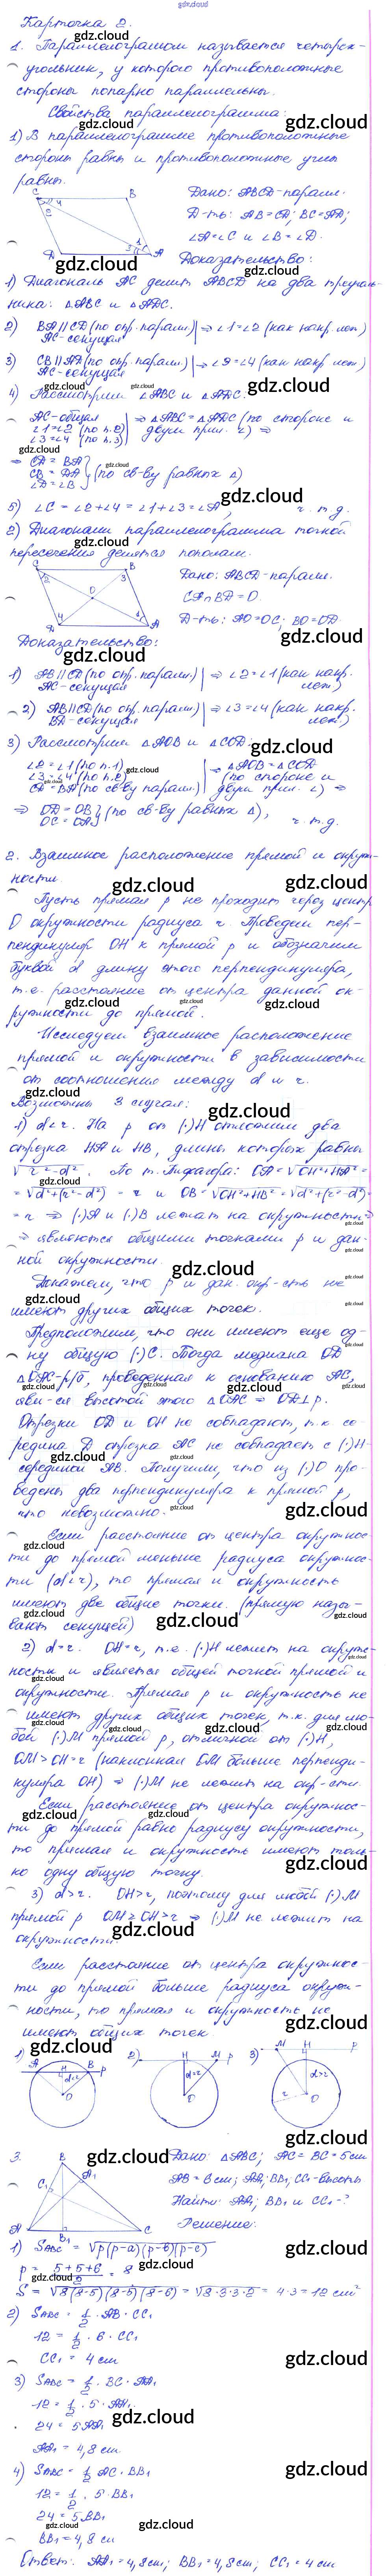 gdz.cloud
Карточка 2.
1. Параллелограммом называется четырех-
угольник, у которого противоположные
стороны попарно параллельны.
Свойства параллелограмма:
1) В параллелограмме противоположные
стороны равны и противоположные углы
равны.
Дано: ABCD-паралл.
Д-ть: AB=CD; BC=AD;
∠A=∠C и ∠B=∠D.
Доказательство:
1) Диагональ AC делит ABCD на два треуголь-
ника: △ABC и △ADC.
2) BA∥CD (по опр. паралл.) | ⇒ ∠1=∠2 (как накр. леж.)
AC-секущая
3) CB∥AD (по опр. паралл.) | ⇒ ∠3=∠4 (как накр. леж.)
AC-секущая
4) Рассмотрим △ABC и △ADC:
AC-общая | ⇒ △ABC=△ADC (по стороне и
∠1=∠2 (по п.2) двум прил. ∠) ⇒
∠3=∠4 (по п.3)
⇒ CD = BA
CB = DA (по св-ву равных △)
∠D=∠B
5) ∠C = ∠2+∠4 = ∠1+∠3=∠A, ч.т.д.
2) Диагонали параллелограмма точкой
пересечения делятся пополам.
Дано: ABCD-паралл.
CA∩BD=O.
Д-ть: AO=OC; BO=OD.
Доказательство:
1) AB∥CD (по опр. паралл.) | ⇒ ∠2=∠1 (как накр.
AC-секущая леж.)
2) AB∥CD (по опр. паралл.) | ⇒ ∠3=∠4 (как накр.
BD-секущая леж.)
3) Рассмотрим △AOB и △COD:
∠2=∠1 (по п.1) | ⇒ △AOB=△COD
∠3=∠4 (по п.2) (по стороне и
CD=BA (по св-ву паралл.) двум прил. ∠) ⇒
⇒ OD=OB (по св-ву равных △),
OC=OA ч.т.д.
2. Взаимное расположение прямой и окруж-
ности.
Пусть прямая p не проходит через центр
O окружности радиуса r. Проведем пер-
пендикуляр OH к прямой p и обозначим
буквой d длину этого перпендикуляра,
т.е. расстояние от центра данной ок-
ружности до прямой.
Исследуем взаимное расположение
прямой и окружности в зависимости
от соотношения между d и r.
Возможны 3 случая:
1) d<r. На p от (·)H отложим два
отрезка HA и HB, длины которых равны
√r²-d². По т. Пифагора: OA=√OH²+HA²=
=√d²+(r²-d²) = r и OB=√OH²+HB²=√d²+(r²-d²)=
=r ⇒ (·)A и (·)B лежат на окружности ⇒
⇒ являются общими точками p и дан-
ной окружности.
Докажем, что p и дан. окр-сть не
имеют других общих точек.
Предположим, что они имеют еще од-
ну общую (·)C. Тогда медиана OD
△OAC-р/б, проведенная к основанию AC,
явл-ся высотой этого △OAC ⇒ OD⊥p.
Отрезки OD и OH не совпадают, т.к. се-
редина D отрезка AC не совпадает с (·)H-
серединой AB. Получили, что из (·)O про-
ведены два перпендикуляра к прямой p,
что невозможно.
Если расстояние от центра окружнос-
ти до прямой меньше радиуса окружнос-
ти (d<r), то прямая и окружность
имеют две общие точки. (прямую назы-
вают секущей)
2) d=r. OH=r, т.е. (·)H лежит на окруж-
ности и является общей точкой прямой и
окружности. Прямая p и окружность не
имеют других общих точек, т.к. для лю-
бой (·)M прямой p, отличной от (·)H,
OM>OH=r (наклонная OM больше перпенди-
куляра OH) ⇒ (·)M не лежит на окр-сти.
Если расстояние от центра окружнос-
ти до прямой равно радиусу окружности,
то прямая и окружность имеют толь-
ко одну общую точку.
3) d>r. OH>r, поэтому для любой (·)M
прямой p OM≥OH>r ⇒ (·)M не лежит на
окружности.
Если расстояние от центра окружнос-
ти до прямой больше радиуса окруж-
ности, то прямая и окружность не
имеют общих точек.
1) A H B p d<r O
2) H M p O
3) M H p d>r r O
3. Дано: △ABC; AC=BC=5см
AB=6см; AA₁; BB₁; CC₁-высоты
Найти: AA₁; BB₁ и CC₁-?
Решение:
1) S ABC = √p(p-a)(p-b)(p-c)
p = 5+5+6 / 2 = 8
S = √8(8-5)(8-5)(8-6) = √8·3·3·2 = 4·3=12 см²
2) S ABC = 1/2 · AB · CC₁
12 = 1/2 · 6 · CC₁
CC₁ = 4 см
3) S ABC = 1/2 · BC · AA₁
12 = 1/2 · 5 · AA₁
24 = 5AA₁
AA₁ = 4,8 см.
4) S ABC = 1/2 AC · BB₁
12 = 1/2 · 5 · BB₁
24 = 5BB₁
BB₁ = 4,8 см
Ответ: AA₁=4,8см; BB₁=4,8см; CC₁=4см